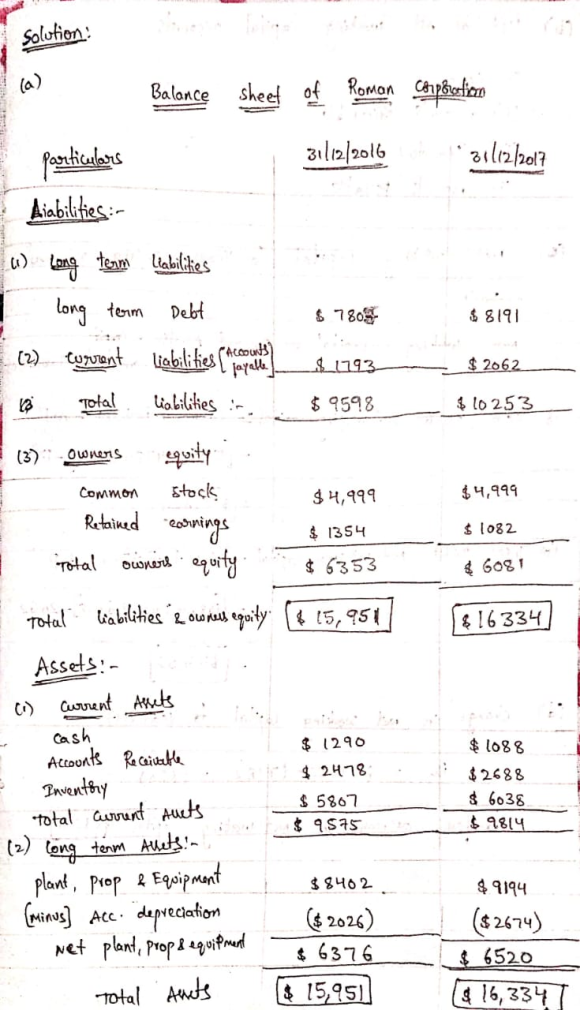 Solution:
(a)
Balance sheet of Roman Corporation
Particulars 31/12/2016 31/12/2017
Liabilities:-
(1) Long term Liabilities
long term Debt $ 7805 $ 8191
(2) Current Liabilities [Accounts payable] $ 1793 $ 2062
Total Liabilities :- $ 9598 $ 10253
(3) Owners equity
Common Stock $4,999 $4,999
Retained earnings $ 1354 $ 1082
Total owners equity $ 6353 $ 6081
Total liabilities & owners equity $ 15,951 $16334
Assets:-
(1) Current Assets
Cash $ 1290 $ 1088
Accounts Receivable $ 2478 $2688
Inventory $ 5807 $ 6038
Total Current Assets $ 9575 $ 9814
(2) Long term Assets:-
plant, Prop & Equipment $8402 $ 9194
[Minus] Acc. depreciation ($2026) ($2674)
Net plant, prop & equipment $ 6376 $ 6520
Total Assets $ 15,951 $ 16,334